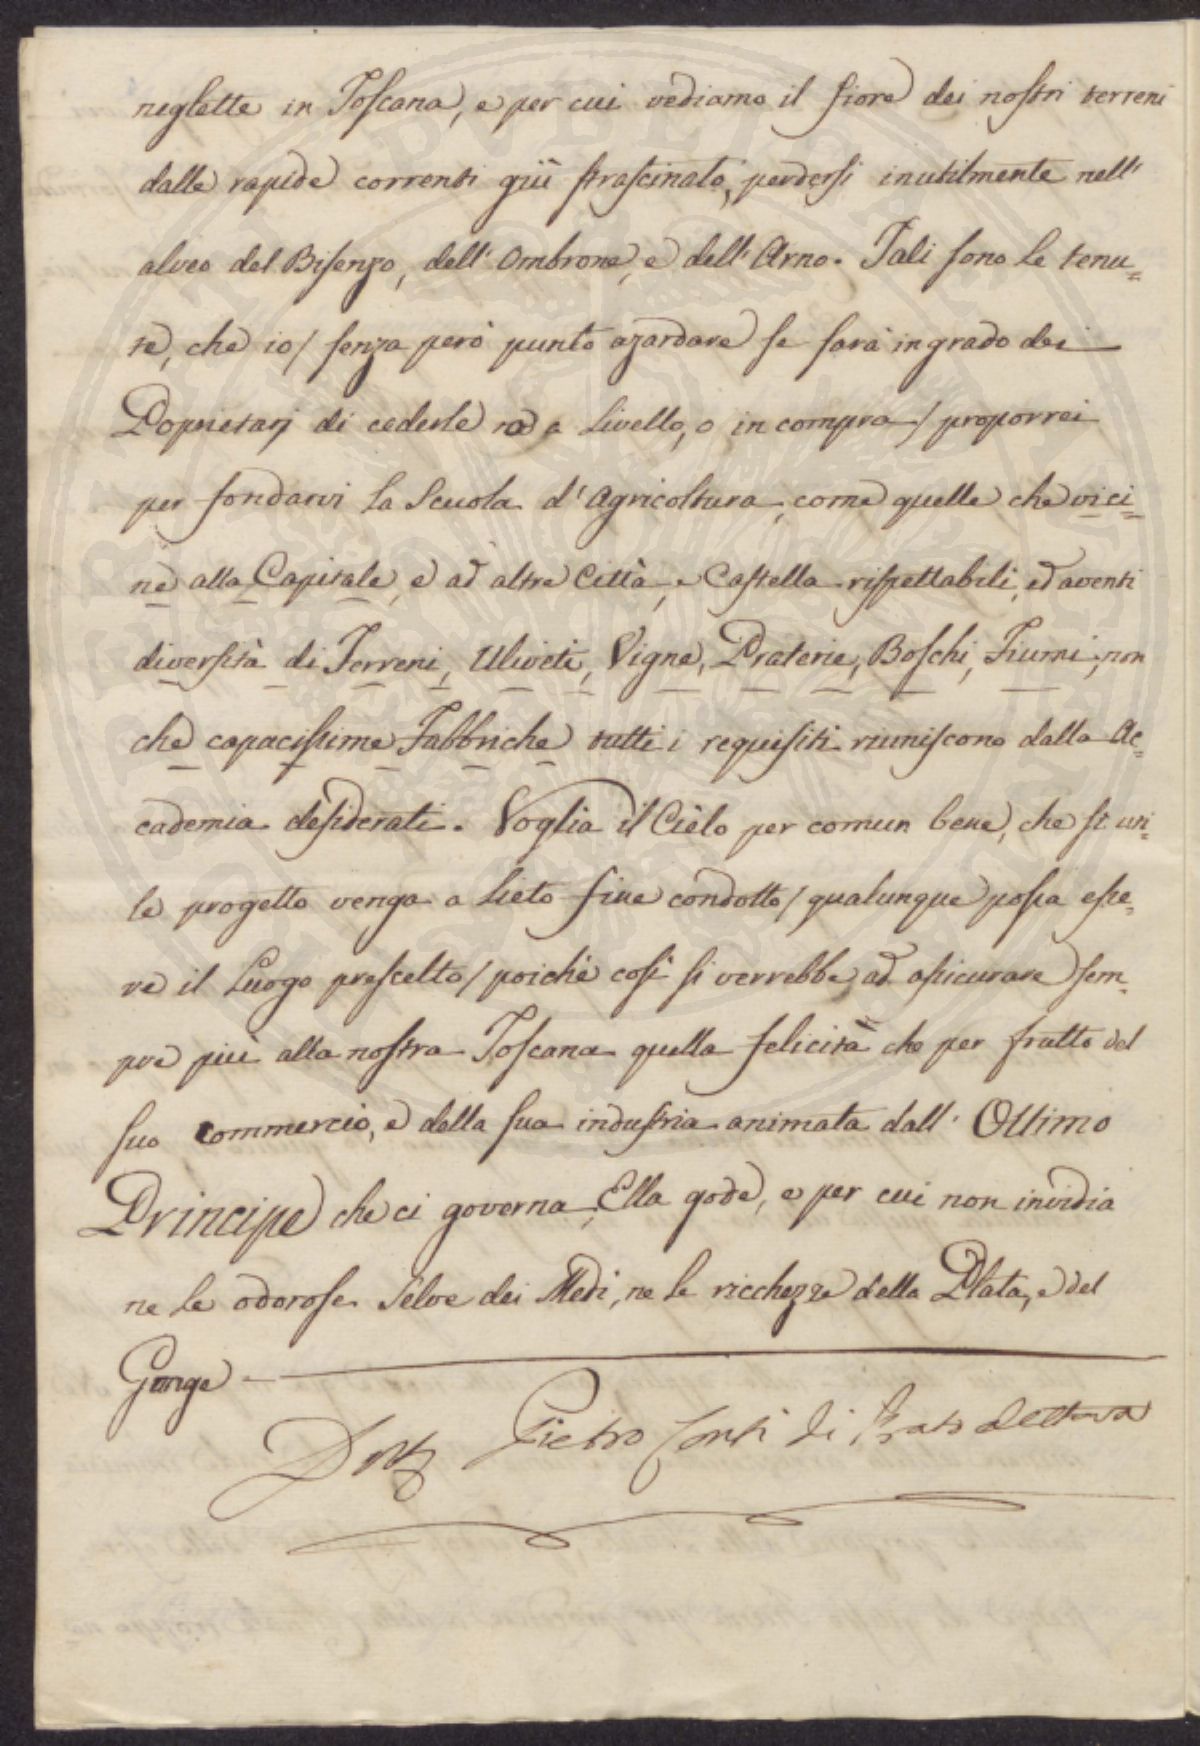 neglette in Toscana, e per cui vediamo il fiore dei nostri terreni
dalle rapide correnti giù strascinato, perdersi inutilmente nell'
alveo del Bisenzo, dell'Ombrone, e dell'Arno. Tali sono le tenu=
te, che io / senza però punto azardare se sarà in grado dei
Proprietarj di cederle o a Livello, o in compra / proporrei
per fondarvi la Scuola d'Agricoltura, come quelle che vici=
ne alla Capitale, e ad altre Città, e Castella rispettabili, ed aventi
diversità di Terreni, Uliveti, Vigne, Praterie, Boschi, Fiumi, non
che capacissime Fabbriche tutti i requisiti riuniscono dalla Ac=
cademia desiderati. Voglia il Cielo per comun bene, che sì uti=
le progetto venga a lieto fine condotto / qualunque possa esse=
re il Luogo prescelto / poichè così si verrebbe ad assicurare sem=
pre più alla nostra Toscana quella felicità che per frutto del
suo commercio, e della sua industria animata dall'Ottimo
Principe che ci governa, Ella gode, e per cui non invidia
ne le odorose Selve dei Medi, ne le ricchezze della Plata, e del
Gange
Dott Pietro Conti di Prato